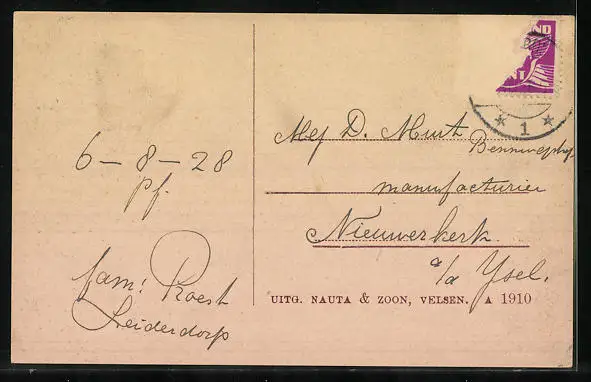 ND
NT
1
6 – 8 – 28
pf.
fam: Roest
Leiderdorp
Mej D. Murt
manufacturier
Nieuwerkerk
a/d Ysel.
UITG. NAUTA & ZOON, VELSEN. A 1910